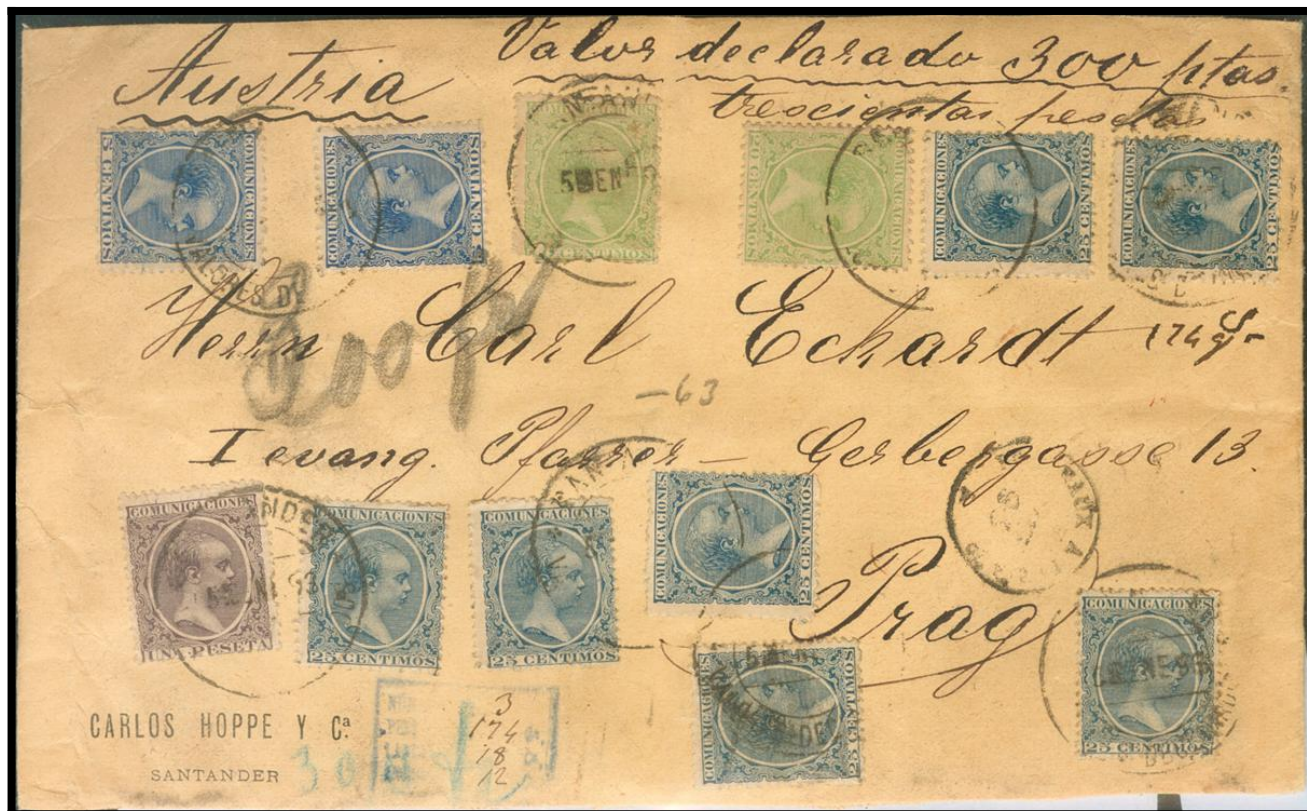 Austria
Valor declarado 300 ptas.
trescientas pesetas
COMUNICACIONES
5 CENTIMOS
COMUNICACIONES
5 CENTIMOS
5 EN
COMUNICACIONES
COMUNICACIONES
25 CENTIMOS
COMUNICACIONES
25 CENTIMOS
VALORES D
Herrn Carl Echardt 174 gr
300 pts
-63
I evang. Pfarrer - Gerbergasse 13.
COMUNICACIONES
UNA PESETA
COMUNICACIONES
25 CENTIMOS
COMUNICACIONES
25 CENTIMOS
COMUNICACIONES
25 CENTIMOS
Prag
COMUNICACIONES
25 CENTIMOS
COMUNICACIONES
25 CENTIMOS
CARLOS HOPPE Y Cª
SANTANDER
3
174
18
12